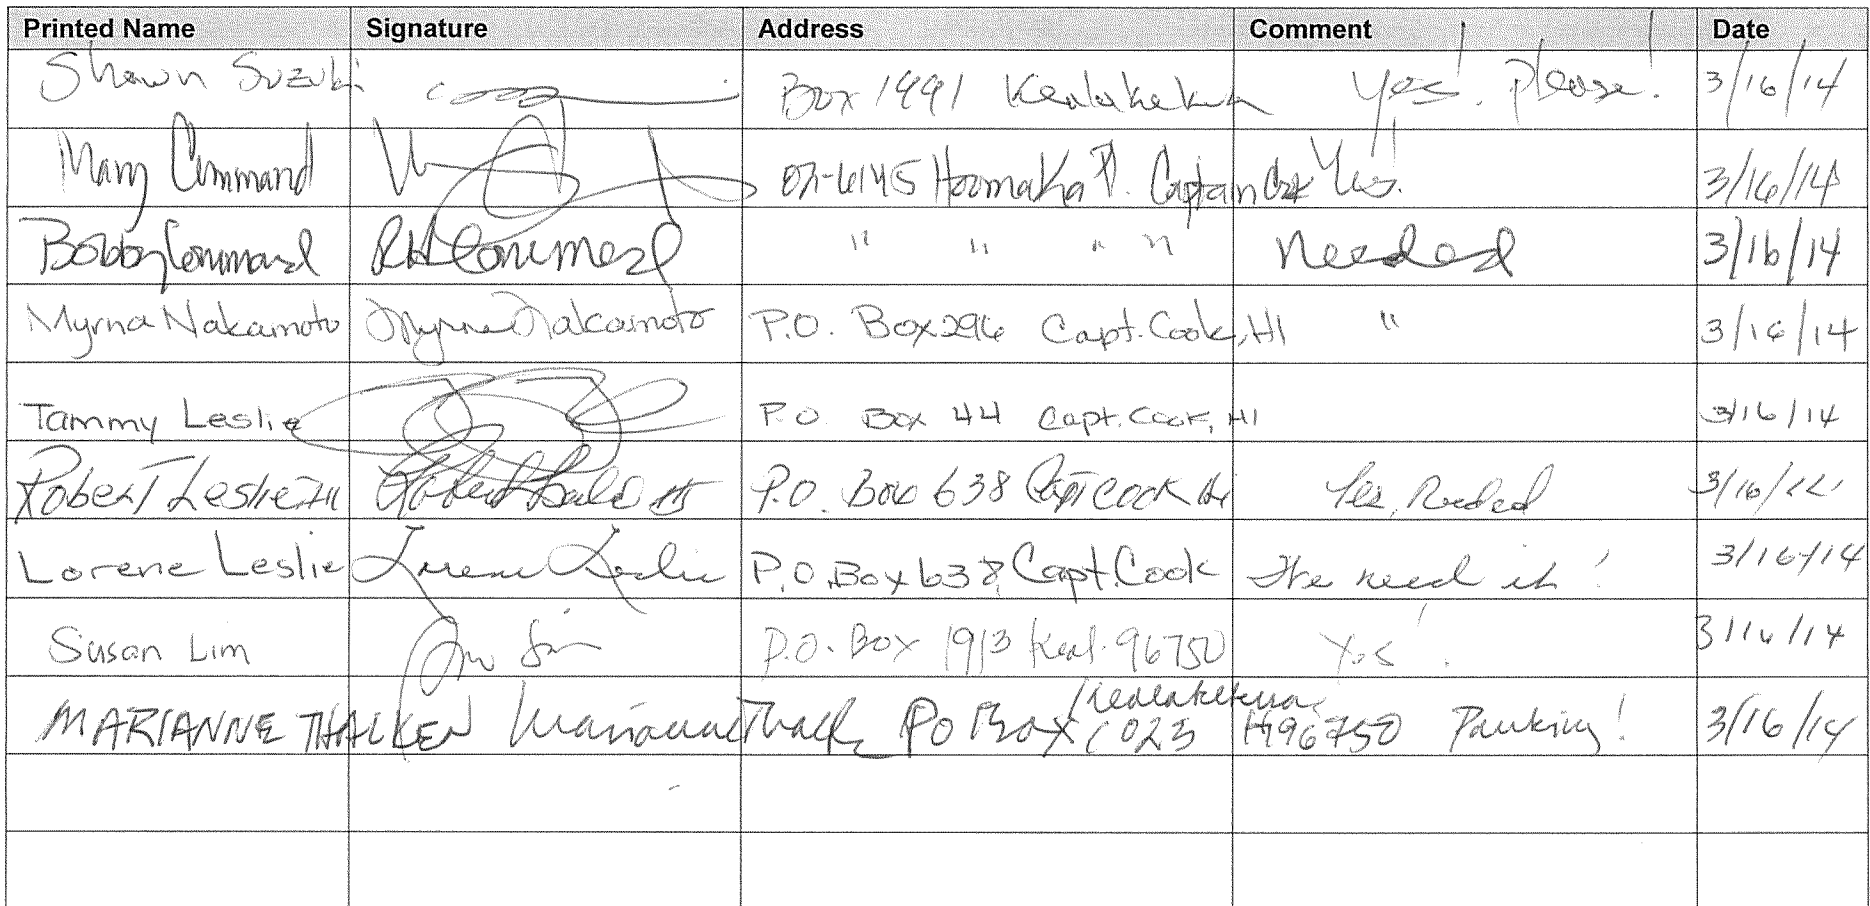 Printed Name Signature Address Comment Date
Shawn Suzuki Box 1991 Kealakekua Yes! Please! 3/16/14
Mary Command Captain Cook Yes! 3/16/14
Bobby Command RH Command " " " " Needed 3/16/14
Myrna Nakamoto Myrna Nakamoto P.O. Box 296 Capt. Cook, HI " 3/16/14
Tammy Leslie P.O. Box 44 Capt. Cook, HI 3/16/14
Robert Leslie III P.O. Box 638 Capt Cook Hi Yes, Needed 3/16/
Lorene Leslie Lorene Leslie P.O. Box 638 Capt. Cook We need it! 3/16/14
Susan Lim Su Lim P.O. Box 1913 Keal. 96750 Yes! 3/16/14
MARIANNE THALKEN Marianne Thalk PO Box 1023 Kealakekua HI 96750 Parking! 3/16/14